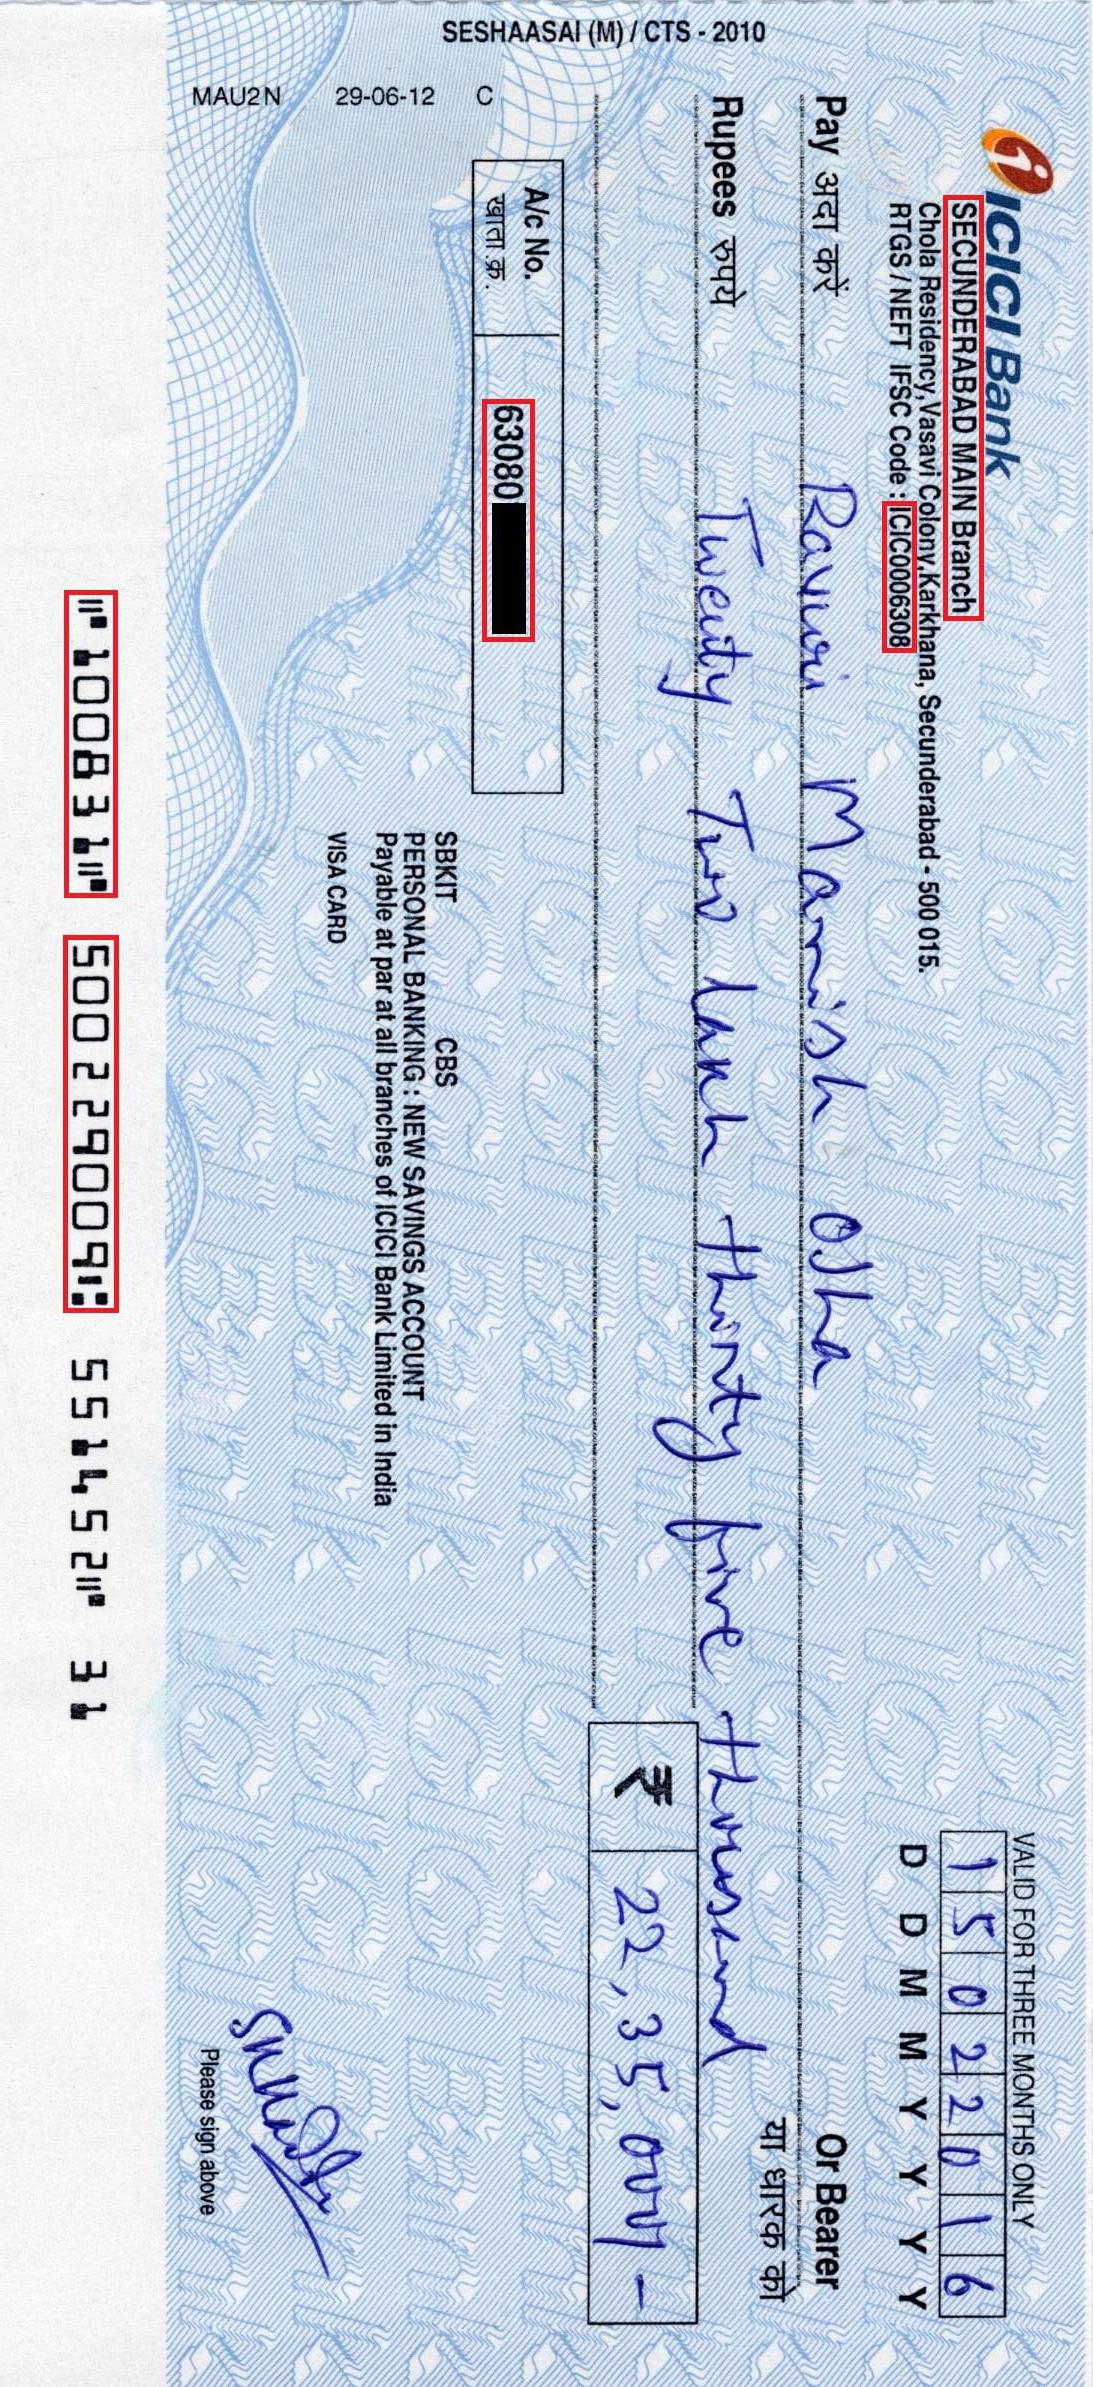 SESHAASAI (M) / CTS - 2010
MAU2N 29-06-12 C
ICICI Bank
SECUNDERABAD MAIN Branch
Chola Residency, Vasavi Colony, Karkhana, Secunderabad - 500 015.
RTGS / NEFT IFSC Code : ICIC0006308
VALID FOR THREE MONTHS ONLY
15022016
D D M M Y Y Y Y
Pay अदा करें Ravuri Manish Ojha Or Bearer
या धारक को
Rupees रुपये Twenty Two Lakh thirty five thousand
₹ 22,35,000/-
A/c No. 63080
खाता क्र.
SBKIT CBS
PERSONAL BANKING : NEW SAVINGS ACCOUNT
Payable at par at all branches of ICICI Bank Limited in India
VISA CARD
Please sign above
⑈100831⑈ 500229009⑆ 551452⑈ 31